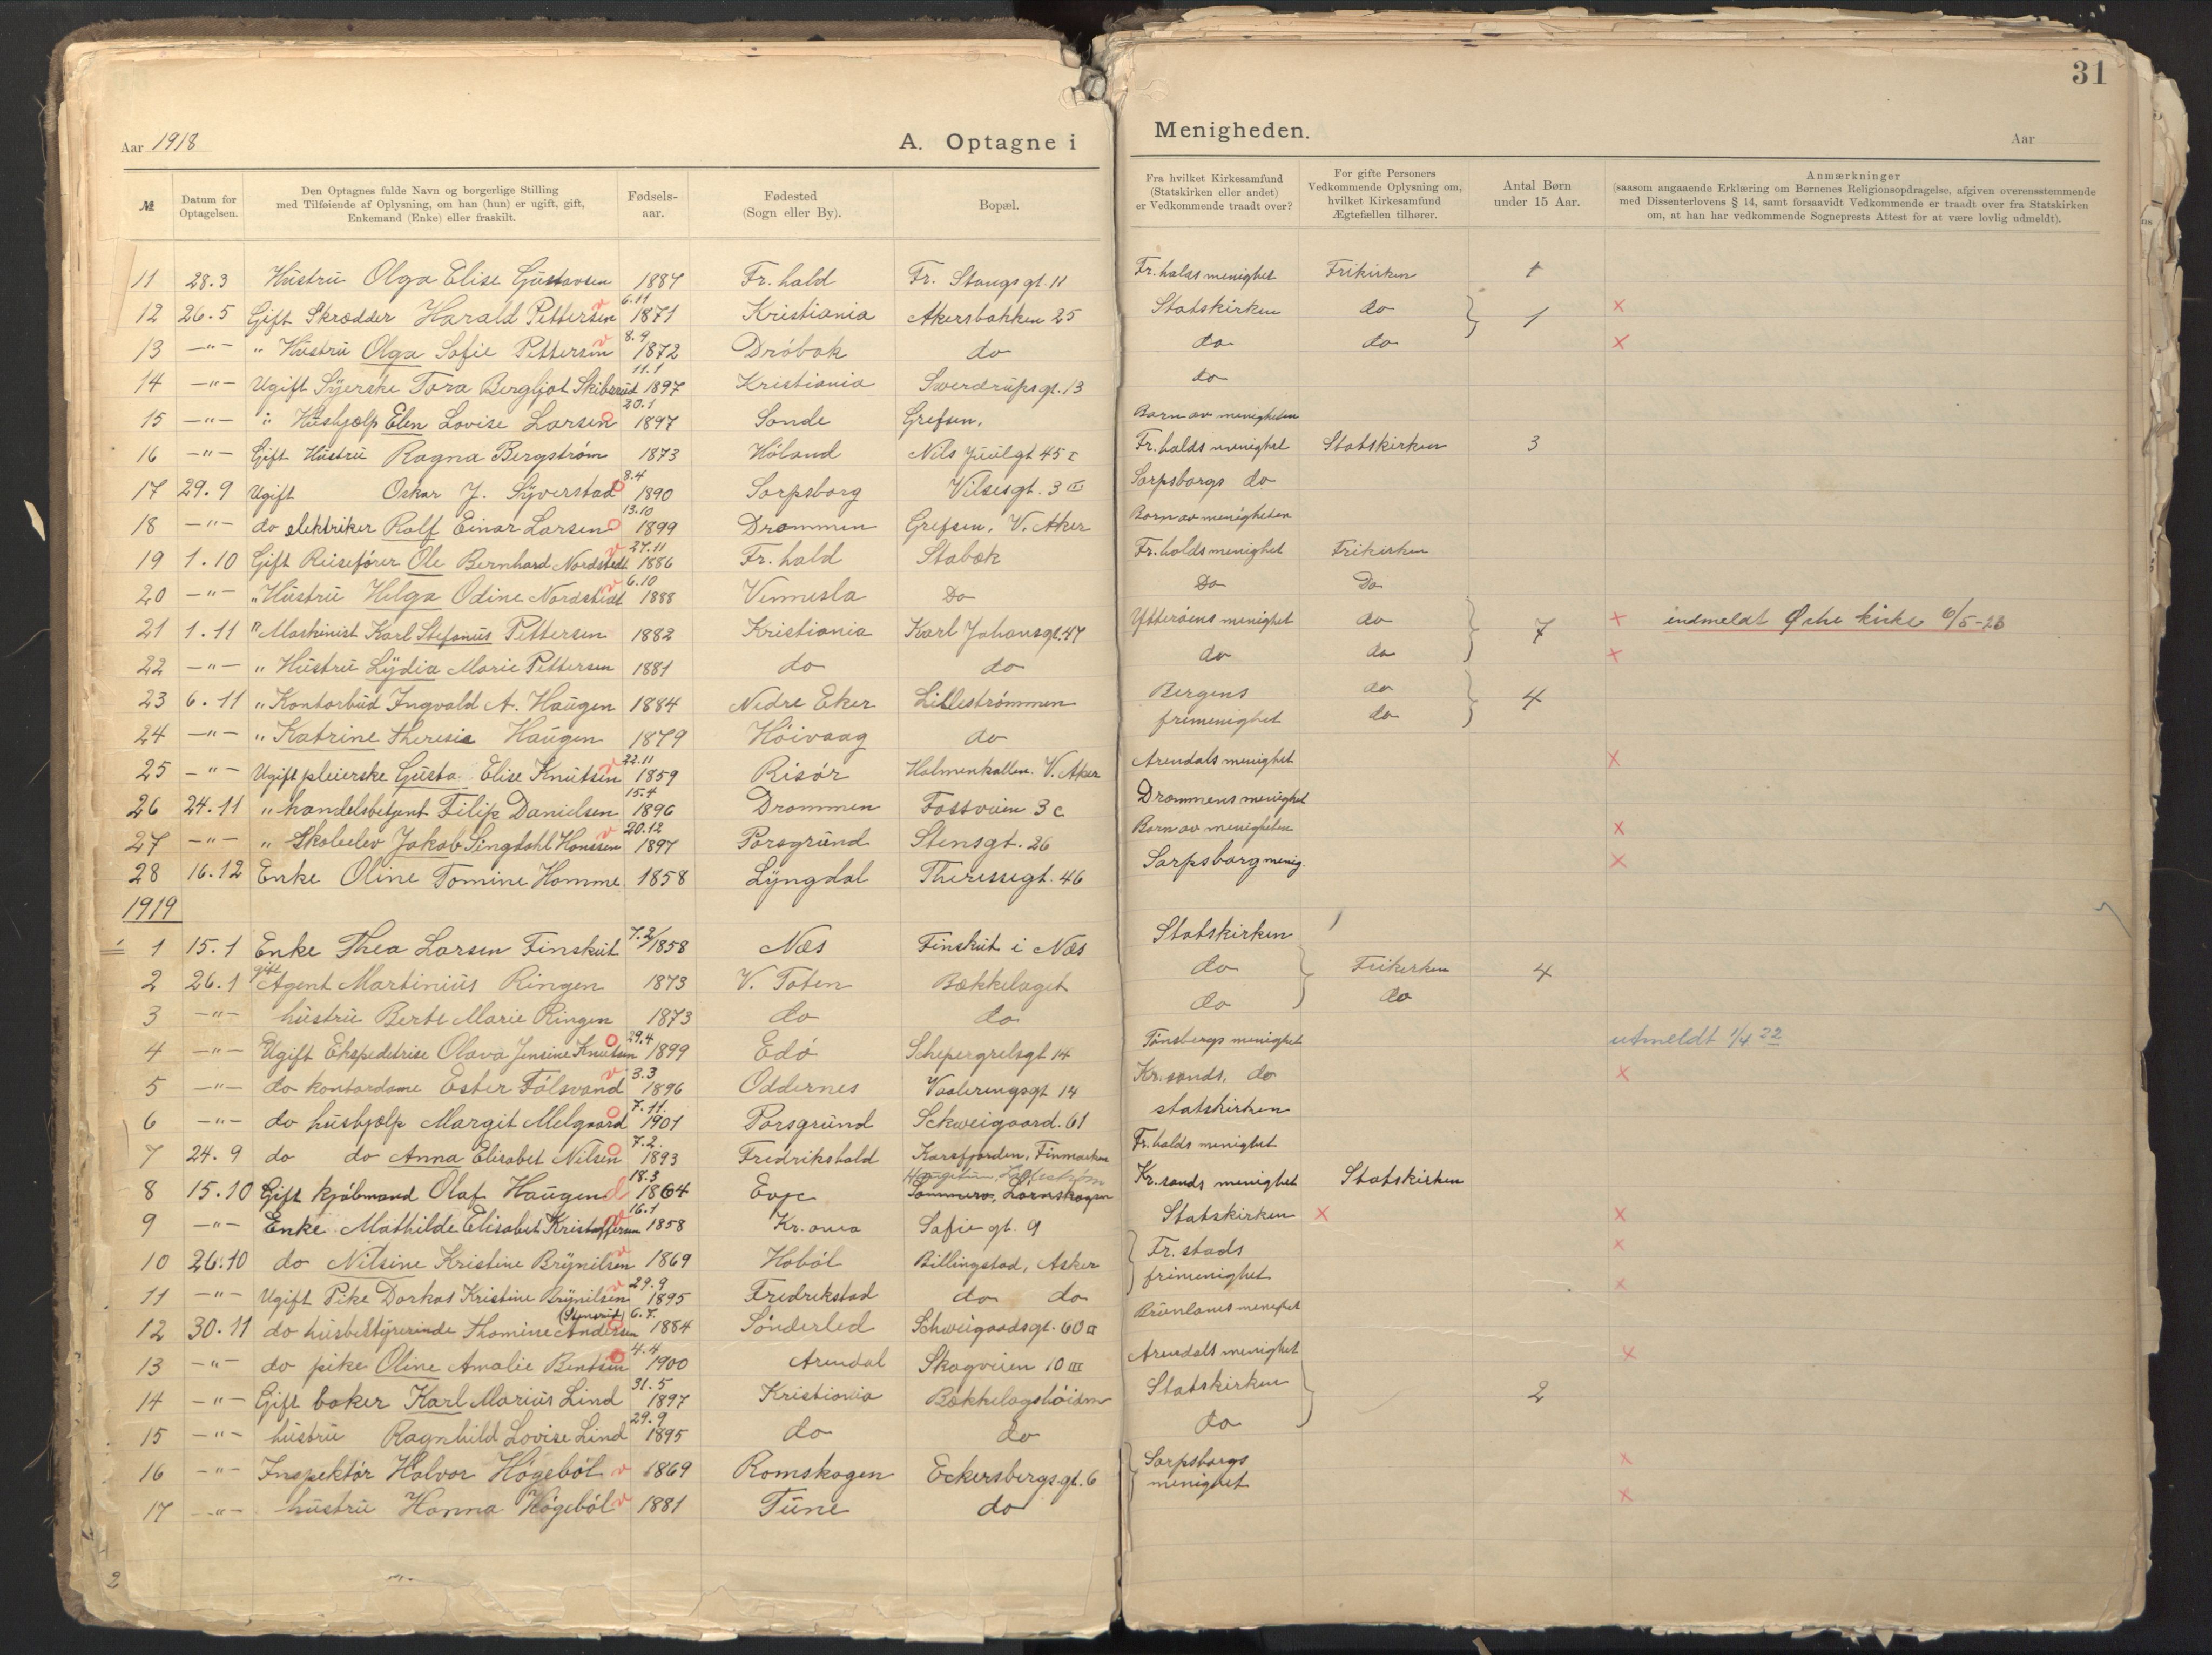 31
Aar 1918 A. Optagne i Menigheden. Aar
№ | Datum for Optagelsen. | Den Optagnes fulde Navn og borgerlige Stilling med Tilføiende af Oplysning, om han (hun) er ugift, gift, Enkemand (Enke) eller fraskilt. | Fødsels-aar. | Fødested (Sogn eller By). | Bopæl. | Fra hvilket Kirkesamfund (Statskirken eller andet) er Vedkommende traadt over? | For gifte Personers Vedkommende Oplysning om, hvilket Kirkesamfund Ægtefællen tilhører. | Antal Børn under 15 Aar. | Anmærkninger (saasom angaaende Erklæring om Børnenes Religionsopdragelse, afgiven overensstemmende med Dissenterlovens § 14, samt forsaavidt Vedkommende er traadt over fra Statskirken om, at han har vedkommende Sogneprests Attest for at være lovlig udmeldt).
11 28.3 Hustru Olga Elise Gustavsen 1887 Fr. hald Fr. Stangs gt. 11 Fr. halds menighet Frikirken
12 26.5 Gift Skrædder Harald Pettersen v 6.11 1871 Kristiania Akersbakken 25 Statskirken do 1 x
13 -"- " Hustru Olga Sofie Pettersen v 8.9 1872 Dröbak do do do x
14 -"- Ugift Syerske Tora Bergljot Skibsrud 11.1 1897 Kristiania Sverdrups gt. 13 do
15 -"- " Hushjælp Elen Lovise Larsen o 20.1 1897 Sande Grefsen. Barn av menigheten
16 -"- Gift Hustru Ragna Bergström 1873 Höland Nils Juulgt 45 I Fr. halds menighet Statskirken 3
17 29.9 Ugift Oskar J. Syverstad o 8.4 1890 Sarpsborg Vilsesgt. 3 III Sarpsborgs do
18 -"- do elektriker Rolf Einar Larsen o 13.10 1899 Drammen Grefsen, V. Aker Barn av menigheten
19 1.10 Gift Reisefører Ole Bernhard Nordstedt v 27.11 1886 Fr. hald Stabæk Fr. halds menighet Frikirken
20 -"- " Hustru Helga Odine Nordstedt v 6.10 1888 Vennesla Do Do Do
21 1.11 " Maskinist Karl Stefanus Pettersen 1882 Kristiania Karl Johansgt. 47 Ytterøens menighet do 7 x indmeldt Østre kirke 6/5-23
22 -"- " Hustru Lydia Marie Pettersen 1881 do do do do x
23 6.11 " Kontorbud Ingvald A. Haugen 1884 Nedre Eker Lilleströmmen Bergens do 4
24 -"- " Katrine Theresie Haugen 1879 Höivaag do frimenighet do
25 -"- Ugift pleierske Gusta Elise Knutsen v 22.11 1859 Risör Holmenkollen. V. Aker Arendals menighet x
26 24.11 " handelsbetjent Filip Danielsen 15.4 1896 Drammen Fossveien 3 c Drammens menighet
27 -"- " Skoleelev Jakob Singdahl Hanssen v 20.12 1897 Porsgrund Stensgt. 26 Barn av menigheten x
28 16.12 Enke Oline Tomine Homme 1858 Lyngdal Theresesgt. 46 Sarpsborg menig. x
1919
1 15.1 Enke Thea Larsen Finskut 7.2/1858 Næs Finskut i Næs Statskirken
2 26.1 gift Agent Martinius Ringen 1873 V. Toten Bækkelaget do Frikirken 4
3 -"- hustru Berte Marie Ringen 1873 do do do do
4 -"- Ugift Ekspeditrise Olava Jensine Knutsen o 29.4 1899 Edö Schepergrelsgt 14 Tønsbergs menighet utmeldt 1/4 22
5 -"- do kontordame Ester Fölsvand v 3.3 1896 Oddernes Vaaleringsgt 14 Kr. sands. do x
6 -"- do hushjælp Margit Melgaard o 7.11. 1901 Porsgrund Schweigaard. 61 statskirken
7 24.9 do do Anna Elisabet Nilsen o 7.2. 1893 Fredrikshald Karsfjorden, Finmarken Fr. halds menighet
8 15.10 Gift kjøbmand Olaf Haugen d 18.3 1864 Evje Haugetun, Lillestrøm Sommero, Lørnskogen Kr. sands menighet Statskirken
9 -"- Enke Mathilde Elisabet Kristoffersen v 16.1 1858 Kr. ania Sofie gt. 9 Statskirken x x
10 26.10 do Nilsine Kristine Brynilsen v 1869 Haböl Billingstad, Asker Fr. stads x
11 -"- Ugift Pike Dorkas Kristine Brynilsen v 29.9 1895 Fredrekstad do do frimenighet x
12 30.11 do husbestyrerinde Thomine Andersen o 6.7. 1884 Sönderled Schweigaadsgt. 60 II Brunlanes menighet
13 -"- do pike Oline Amalie Bentsen o 4.4 1900 Arendal Skogveien 10 III Arendals menighet x
14 -"- Gift baker Karl Marius Lind 31.5 1897 Kristiania Bækkelagshöiden Statskirken 2
15 -"- hustru Ragnhild Lovise Lind 29.9 1895 do do do
16 -"- Inspektör Halvor Högeböl v 1869 Romskogen Eckersbergs gt. 6 Sarpsborgs x
17 -"- hustru Hanna Högeböl v 1881 Tune do menighet x
2